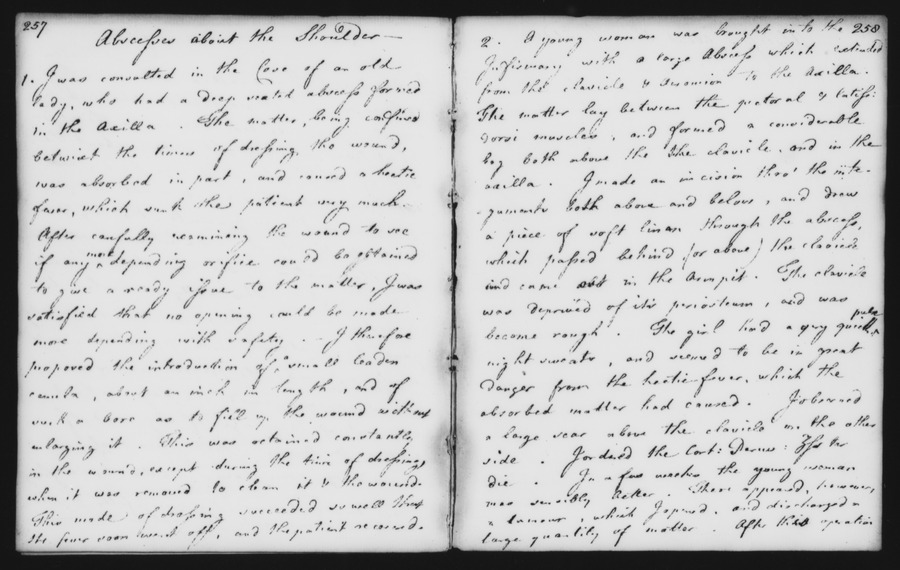 257
Abscesses about the Shoulder
1. I was consulted in the Case of an old
lady, who had a deep seated abscess formed
in the axilla. The matter, being confined
betwixt the times of dressing the wound,
was absorbed in part, and caused a hectic
fever, which sunk the patient very much.
After carefully examining the wound to see
if any more depending orifice could be obtained
to give a ready issue to the matter, I was
satisfied that no opening could be made
more depending with safety. I therefore
proposed the introduction of a small leaden
canula, about an inch in length, and of
such a bore as to fill up the wound without
enlarging it. This was retained constantly
in the wound, except during the time of dressing,
when it was removed to clean it & the wound.
This mode of dressing succeeded so well that
the fever soon went off, and the patient recovered.
258
2. A young woman was brought into the
Infirmary with a large Abscess which extended
from the clavicle & acromion to the axilla.
The matter lay between the pectoral & latiss:
dorsi muscles, and formed a considerable
bag both above the the clavicle, and in the
axilla. I made an incision thro' the inte-
guments both above and below, and drew
a piece of soft linen through the abscess,
which passed behind (or above) the clavicle
and came out in the armpit. The clavicle
was deprived of its periosteum, and was
become rough. The girl had a very quick pulse,
night sweats, and seemed to be in great
danger from the hectic fever, which the
absorbed matter had caused. I observed
a large scar above the clavicle on the other
side. I ordered the Cort: Peruv: ʒss ter
die. In a few weeks the young woman
was sensibly better. There appeared, however,
a tumour, which I opened, and discharged a
large quantity of matter. After this operation